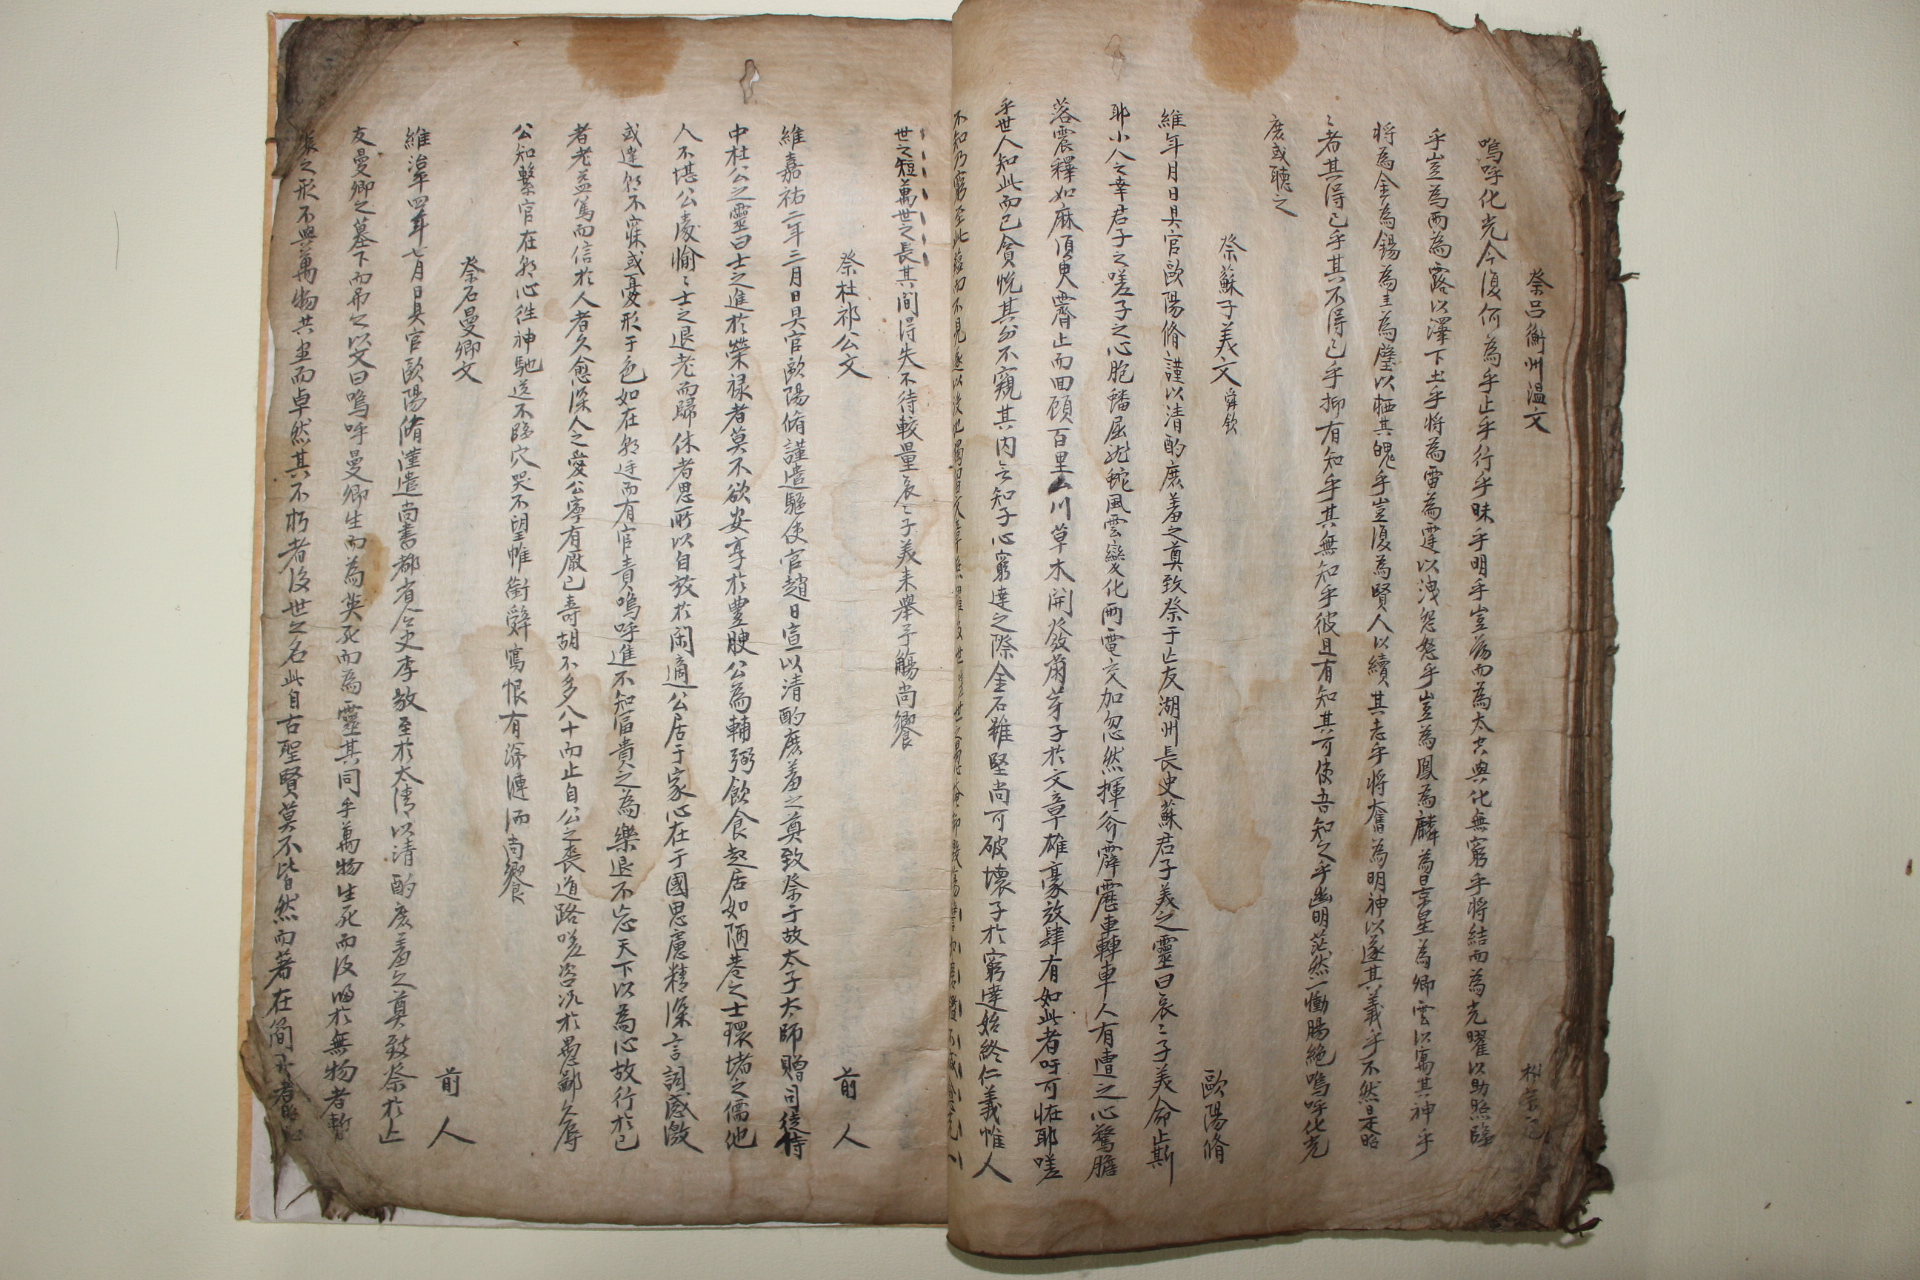 祭呂衡州溫文
嗚呼化光今復何為乎止乎行乎昧乎明乎豈蕩而為太空與化無窮乎將結而為光曜以助照臨
乎豈為雨為露以澤下土乎將為雷為霆以洩怨怒乎豈為鳳為麟為景星為卿雲以寓其神乎
將為金為錫為圭為璧以栖其魄乎豈復為賢人以續其志乎將奮為明神以遂其義乎不然是昭
〻者其得已乎其不得已乎抑有知乎其無知乎彼且有知其可使吾知之乎幽明茫然一慟腸絶嗚呼化光
庶或聽之
祭蘇子美文 舜欽 歐陽脩
維年月日具官歐陽脩謹以清酌庶羞之奠致祭于亡友湖州長史蘇君子美之靈曰哀〻子美命止斯
耶小人之幸君子之嗟子之心胞蟠屈龍蛇風雲變化雨雹交加忽然揮斧霹靂車轉車人有遭之心驚膽
落震釋如麻湏臾霽止而四顧百里山川草木開發萠芽子於文章雄豪放肆有如此者吁可怪耶嗟
乎世人知此而已貪悅其外不窺其内言知子心窮達之際金石雖堅尚可破壞子於窮達始終仁義惟人
不知乃窮至此
世之短萬世之長其間得失不待較量哀〻子美来舉予觴尚饗
祭杜祁公文 前人
維嘉祐二年三月日具官歐陽脩謹遣驅使官趙日宣以清酌庶羞之奠致祭于故太子太師贈司徒侍
中杜公之靈曰士之進於榮禄者莫不欲安享於豐腴公為輔弼飲食起居如陋巷之士環堵之儒他
人不堪公處愉〻士之退老而歸休者思所以自放於閑適公居于家心在于國思慮精深言詞感激
或達朝不寐或憂形于色如在朝廷而有官責嗚呼進不知富貴之為樂退不忘天下以為心故行於已
者老益篤而信於人者久愈深人之愛公寧有厭已壽胡不多八十而止自公之喪道路嗟咨况於愚鄙久辱
公知繫官在朝心徃神馳送不臨穴哭不望帷銜辭寫恨有涕漣洏尚饗
祭石曼卿文 前人
維治平四年七月日具官歐陽脩謹遣尚書都省令史李敭至於太清以清酌庶羞之奠致祭於亡
友曼卿之墓下而吊之以文曰嗚呼曼卿生而為英死而為靈其同乎萬物生死而復歸於無物者暫
聚之形不與萬物共盡而卓然其不朽者後世之名此自古聖賢莫不皆然而著在簡冊者昭如